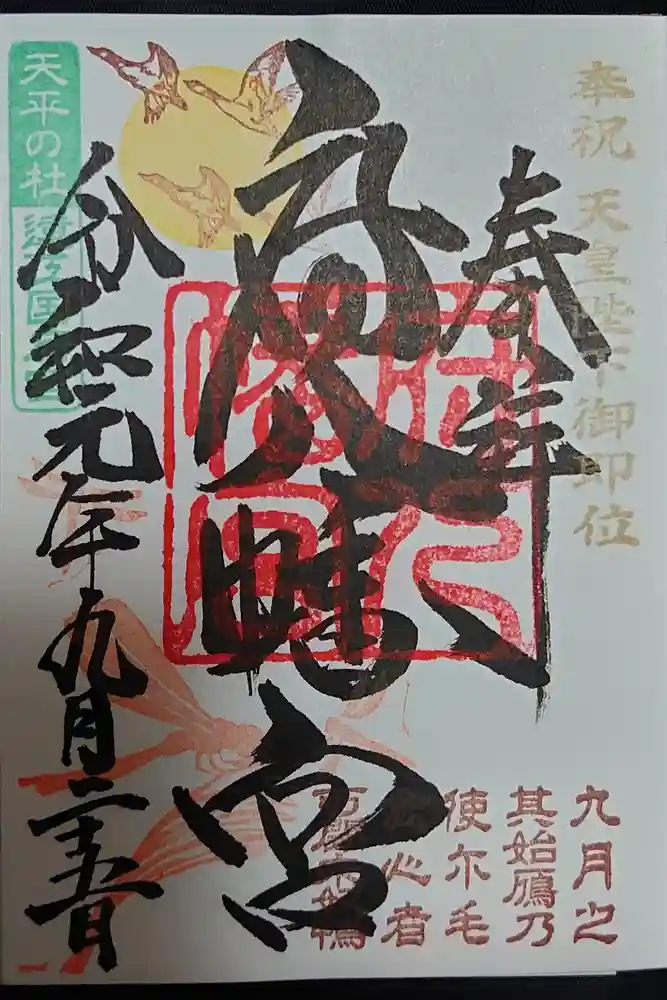 奉祝 天皇陛下御即位
奉拝
府八幡宮
令和元年九月二十五日
天平の杜
九月之
其始鴈乃
使尓毛
念心者
所聞来奴鴨